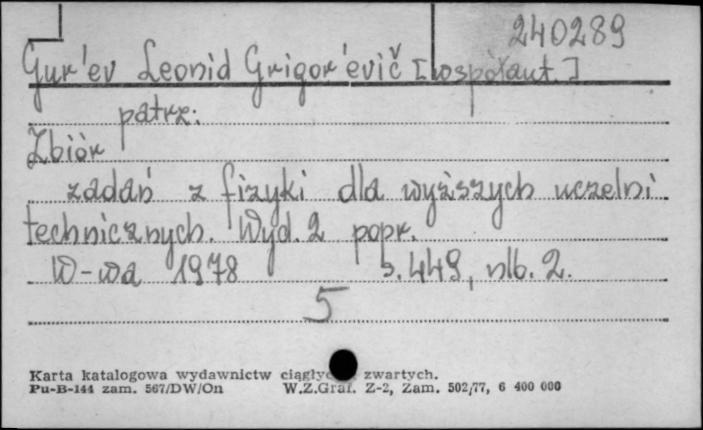 240289
Gur'ev Leonid Grigor'evič [współaut.]
patrz:
Zbiór
zadań z fizyki dla wyższych uczelni
technicznych. Wyd. 2 popr.
W-wa 1978 s. 449, nlb. 2.
5
Karta katalogowa wydawnictw ciągłyc zwartych.
Pu-B-144 zam. 567/DW/On W.Z.Graf. Z-2, Zam. 502/77, 6 400 000